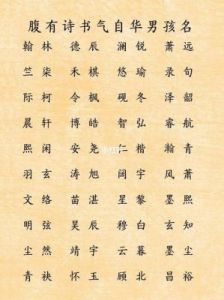 腹有诗书气自华男孩名
翰林 德辰 澜锐 萧远
竺柒 禾棋 悠瑜 录旬
际柯 令枫 砚冬 泽韶
晨轩 博皓 智弘 睿航
熙闲 安尧 仁楷 瀚青
羽玄 涛旭 阔宇 风萧
文络 苗湛 星黎 墨熙
明弦 昊辰 穆白 玄知
尘然 靖宇 云暮 墨尘
青 怀玉 顾北 昌裕